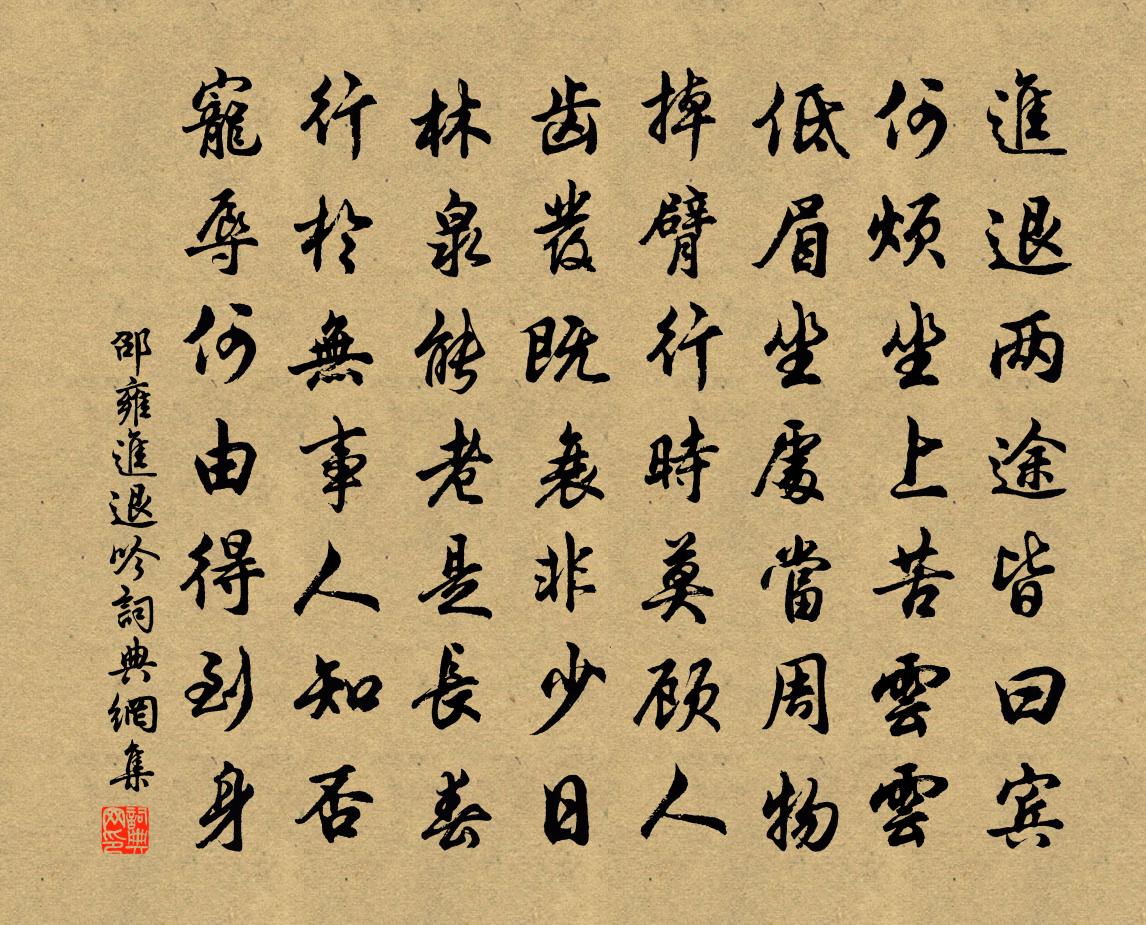 進退两途皆曰宾
何煩坐上苦雲雲
低眉坐處當周物
掉臂行時莫顧人
齿發既衰非少日
林泉能老是長春
行於無事人知否
寵辱何由得到身
邵雍進退吟詞典網集
詞典网印